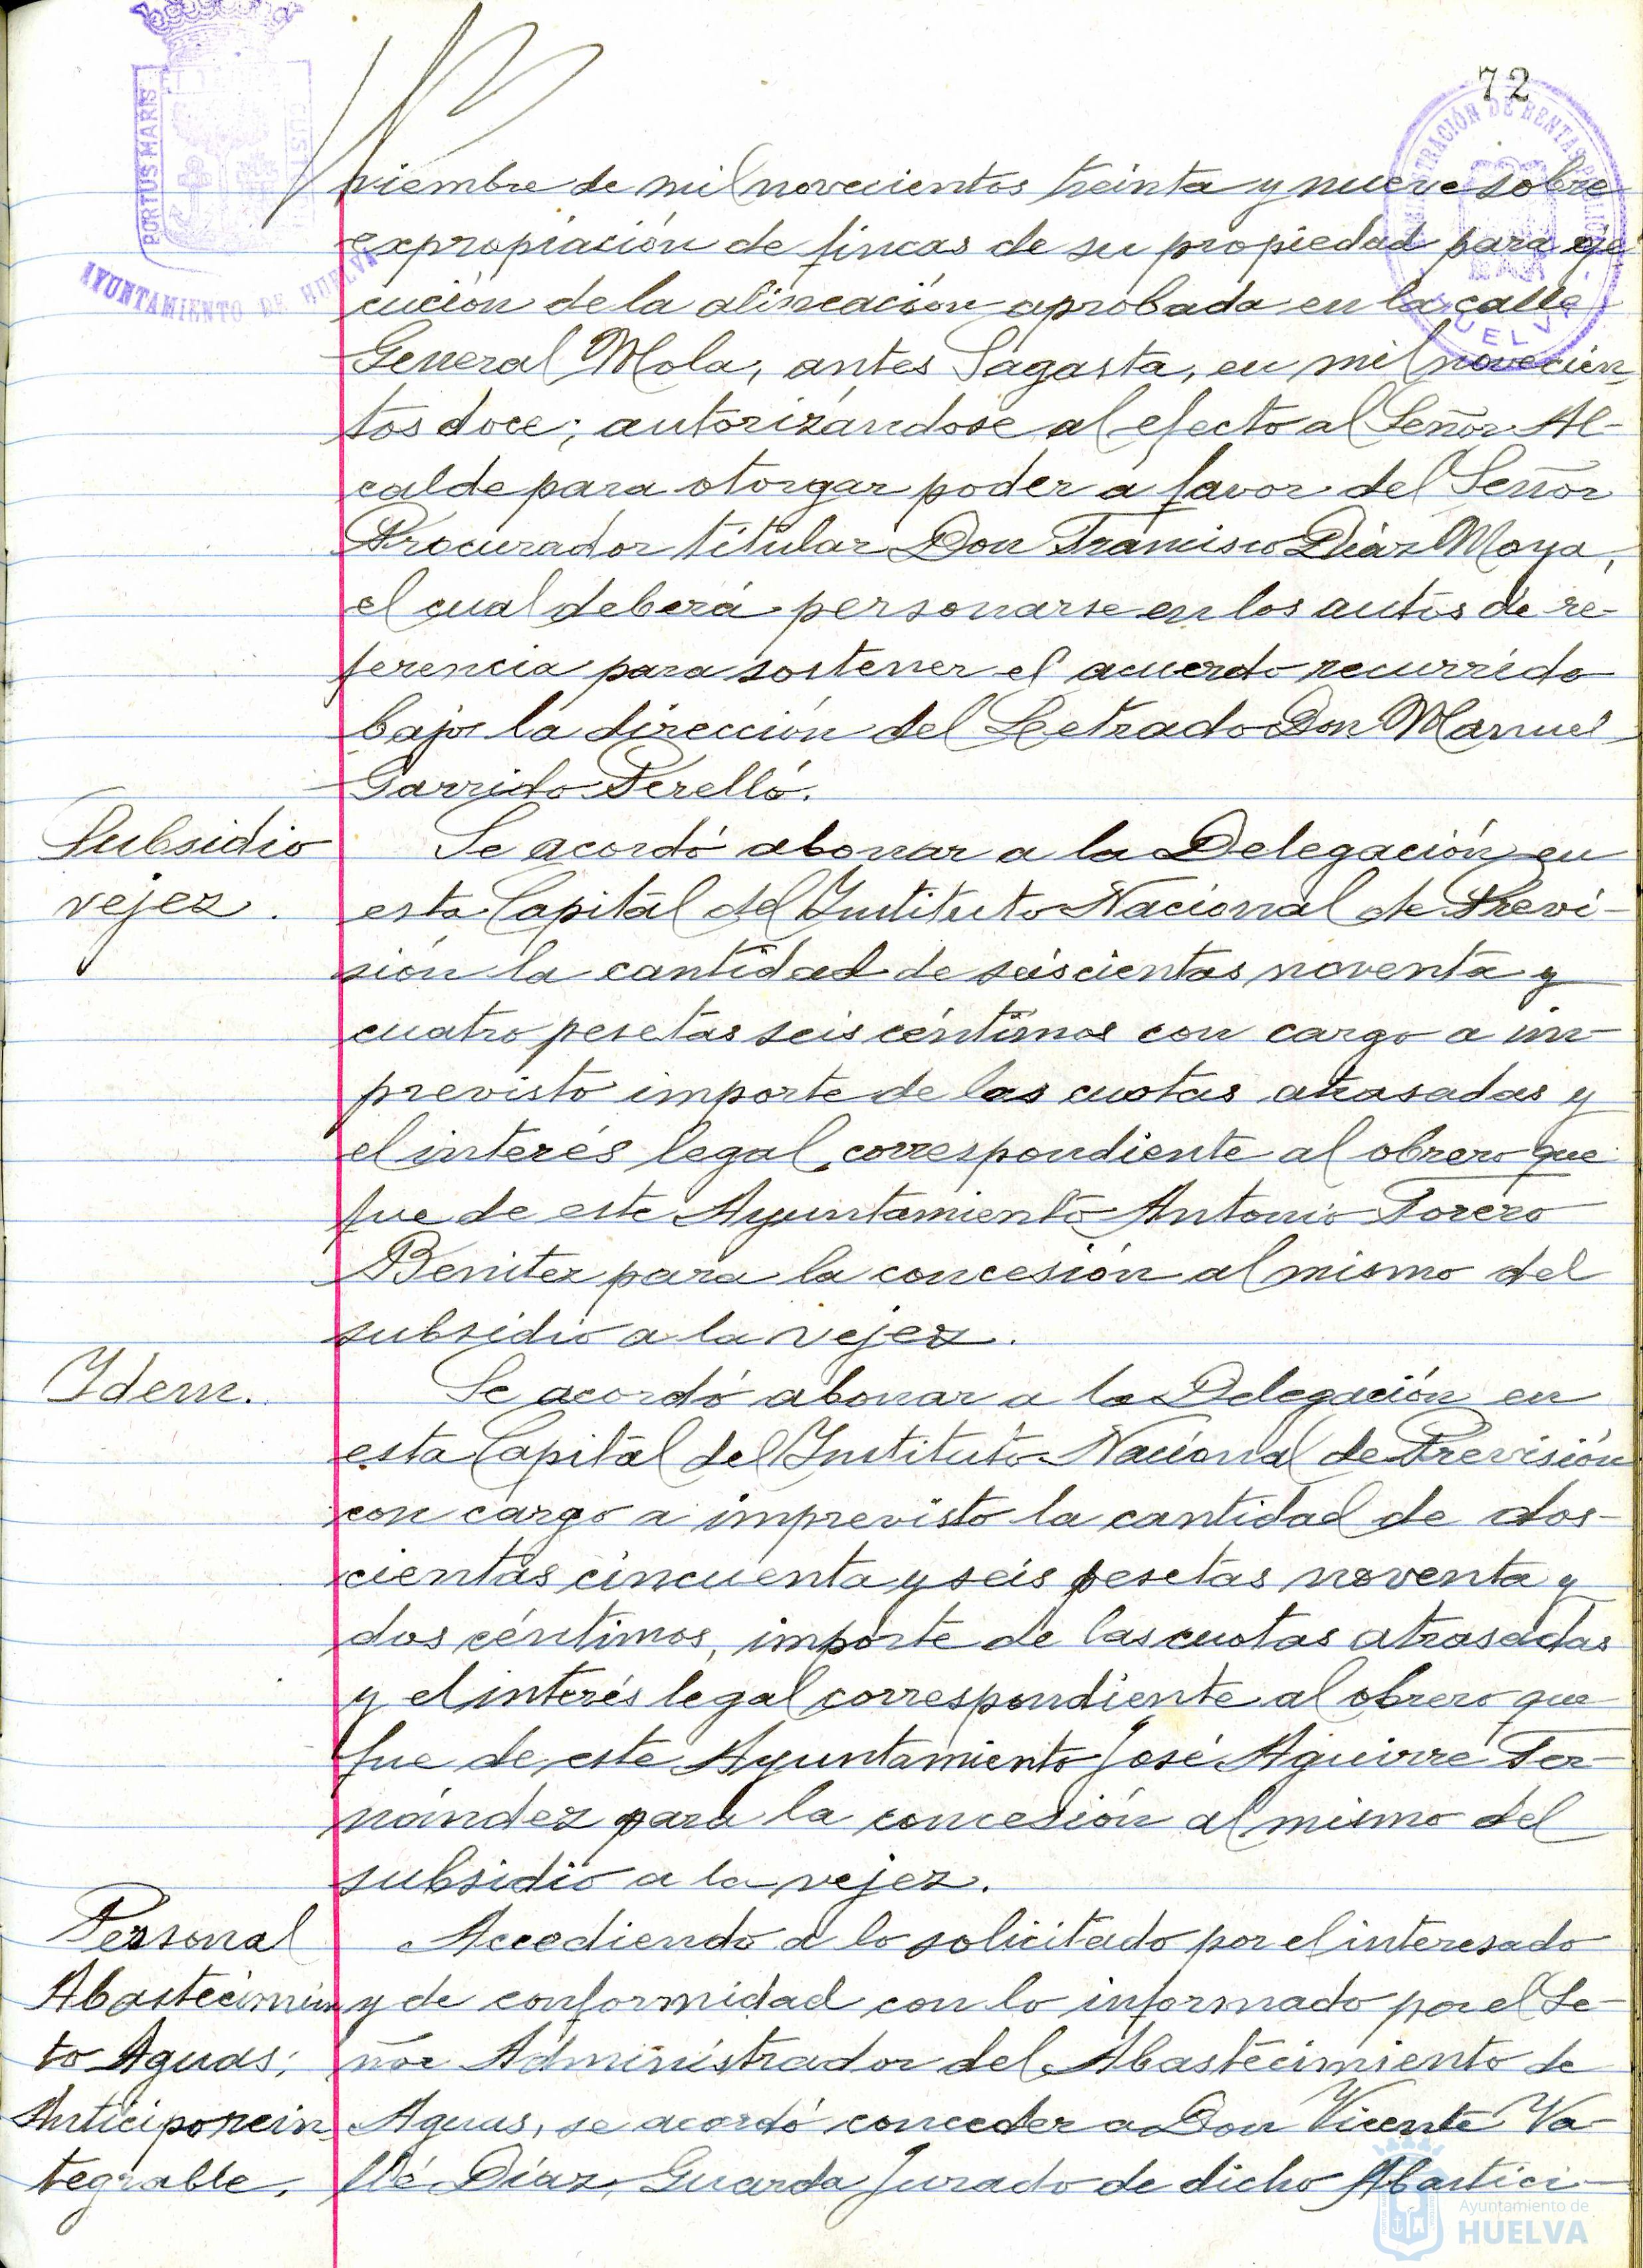 72
PORTUS MARIS
AYUNTAMIENTO DE HUELVA
HUELVA
viembre de mil novecientos treinta y nueve sobre
expropiación de fincas de su propiedad para eje
cución de la alineación aprobada en la calle
General Mola, antes Sagasta, en mil novecien
tos doce; autorizándose al efecto al Señor Al-
calde para otorgar poder a favor del Señor
Procurador titular Don Francisco Díaz Moya,
el cual deberá personarse en los autos de re-
ferencia para sostener el acuerdo recurrido
bajo la dirección del Letrado Don Manuel
Garrido Perelló.
Subsidio
vejez.
Se acordó abonar a la Delegación en
esta Capital del Instituto Nacional de Previ-
sión la cantidad de seiscientas noventa y
cuatro pesetas seis céntimos con cargo a im-
previsto importe de las cuotas atrasadas y
el interés legal correspondiente al obrero que
fue de este Ayuntamiento Antonio Torero
Benitez para la concesión al mismo del
subsidio a la vejez.
Idem.
Se acordó abonar a la Delegación en
esta Capital del Instituto Nacional de Previsión
con cargo a imprevisto la cantidad de dos-
cientas cincuenta y seis pesetas noventa y
dos céntimos, importe de las cuotas atrasadas
y el interés legal correspondiente al obrero que
fue de este Ayuntamiento José Aguirre Fer-
nández para la concesión al mismo del
subsidio a la vejez.
Personal
Abastecimien
to Aguas;
Anticipo rein
tegrable.
Accediendo a lo solicitado por el interesado
y de conformidad con lo informado por el Se-
ñor Administrador del Abastecimiento de
Aguas, se acordó conceder a Don Vicente Va-
llé Díaz, Guarda Jurado de dicho Abasteci-
Ayuntamiento de
HUELVA